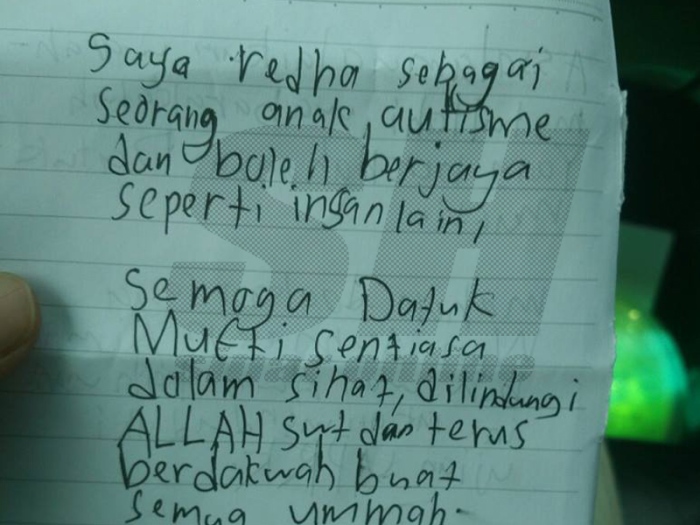 Saya redha sebagai
seorang anak autisme
dan boleh berjaya
seperti insan lain,
Semoga Datuk
Mufti sentiasa
dalam sihat, dilindungi
ALLAH swt dan terus
berdakwah buat
semua ummah.
SH